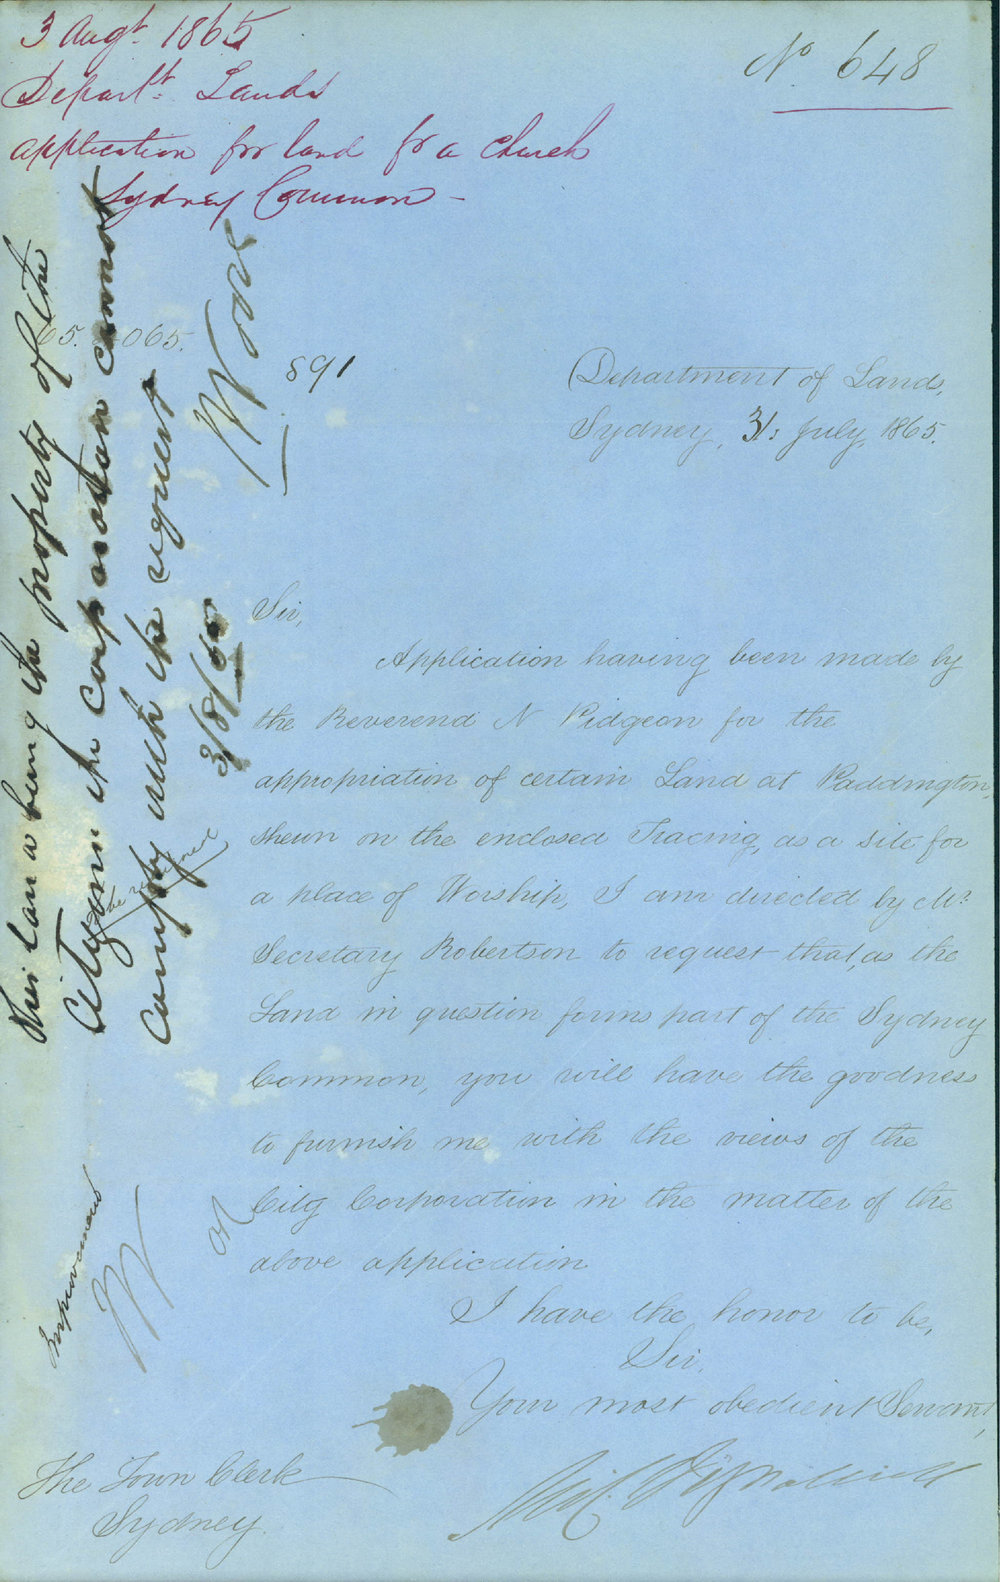 3 Augt. 1865
Departt. Lands
application for land for a church
Sydney Common -
No 648
65. 065.
891
Department of Lands,
Sydney, 31: July, 1865.
Sir,
Application having been made by
the Reverend N Pidgeon for the
appropriation of certain Land at Paddington,
shewn on the enclosed Tracing, as a site for
a place of Worship, I am directed by Mr.
Secretary Robertson to request that, as the
Land in question forms part of the Sydney
Common, you will have the goodness
to furnish me with the views of the
City Corporation in the matter of the
above application
I have the honor to be,
Sir,
Your most obedient Servant,
The Town Clerk
Sydney.
This Land being the property of the
Citizens the Corporation cannot
comply with the request
3/8/65
Improvement